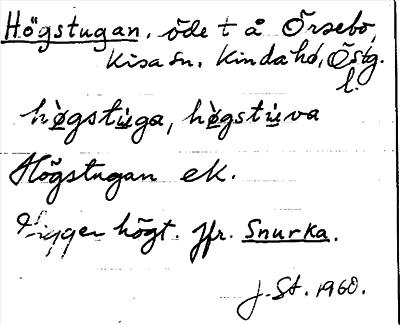 Högstugan. öde t å Örsebo,
Kisa sn. Kinda hd, Östg.
l.
hø̀gstu̇ga, hø̀gstu̇va
Högstugan ek.
Ligger högt. Jfr. Snurka.
J. St. 1960.